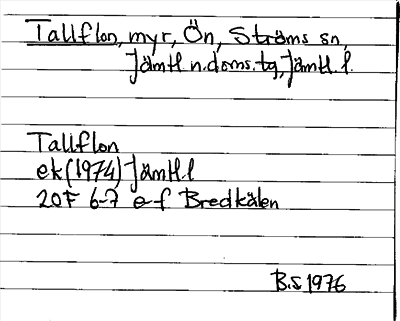 Tallflon, myr, Ön, Ströms sn,
Jämtl. n. doms. tg, Jämtl. l.
Tallflon
ek (1974) Jämtl. l
20F 6-7 e-f Bredkälen
B.S 1976